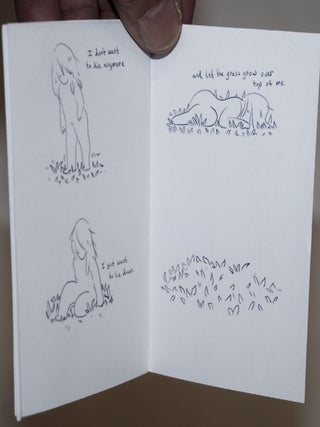 I don't want
to die anymore
I just want
to lie down
and let the grass grow over
top of me.